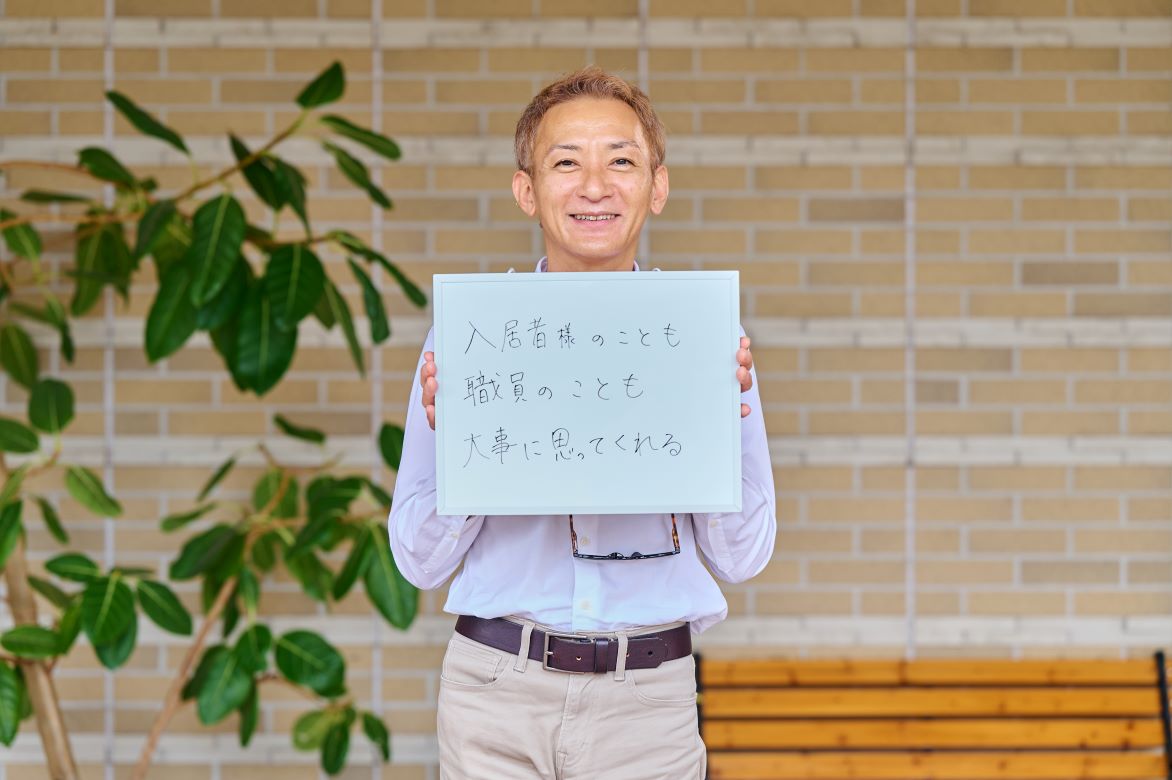 入居者様のことも
職員のことも
大事に思ってくれる